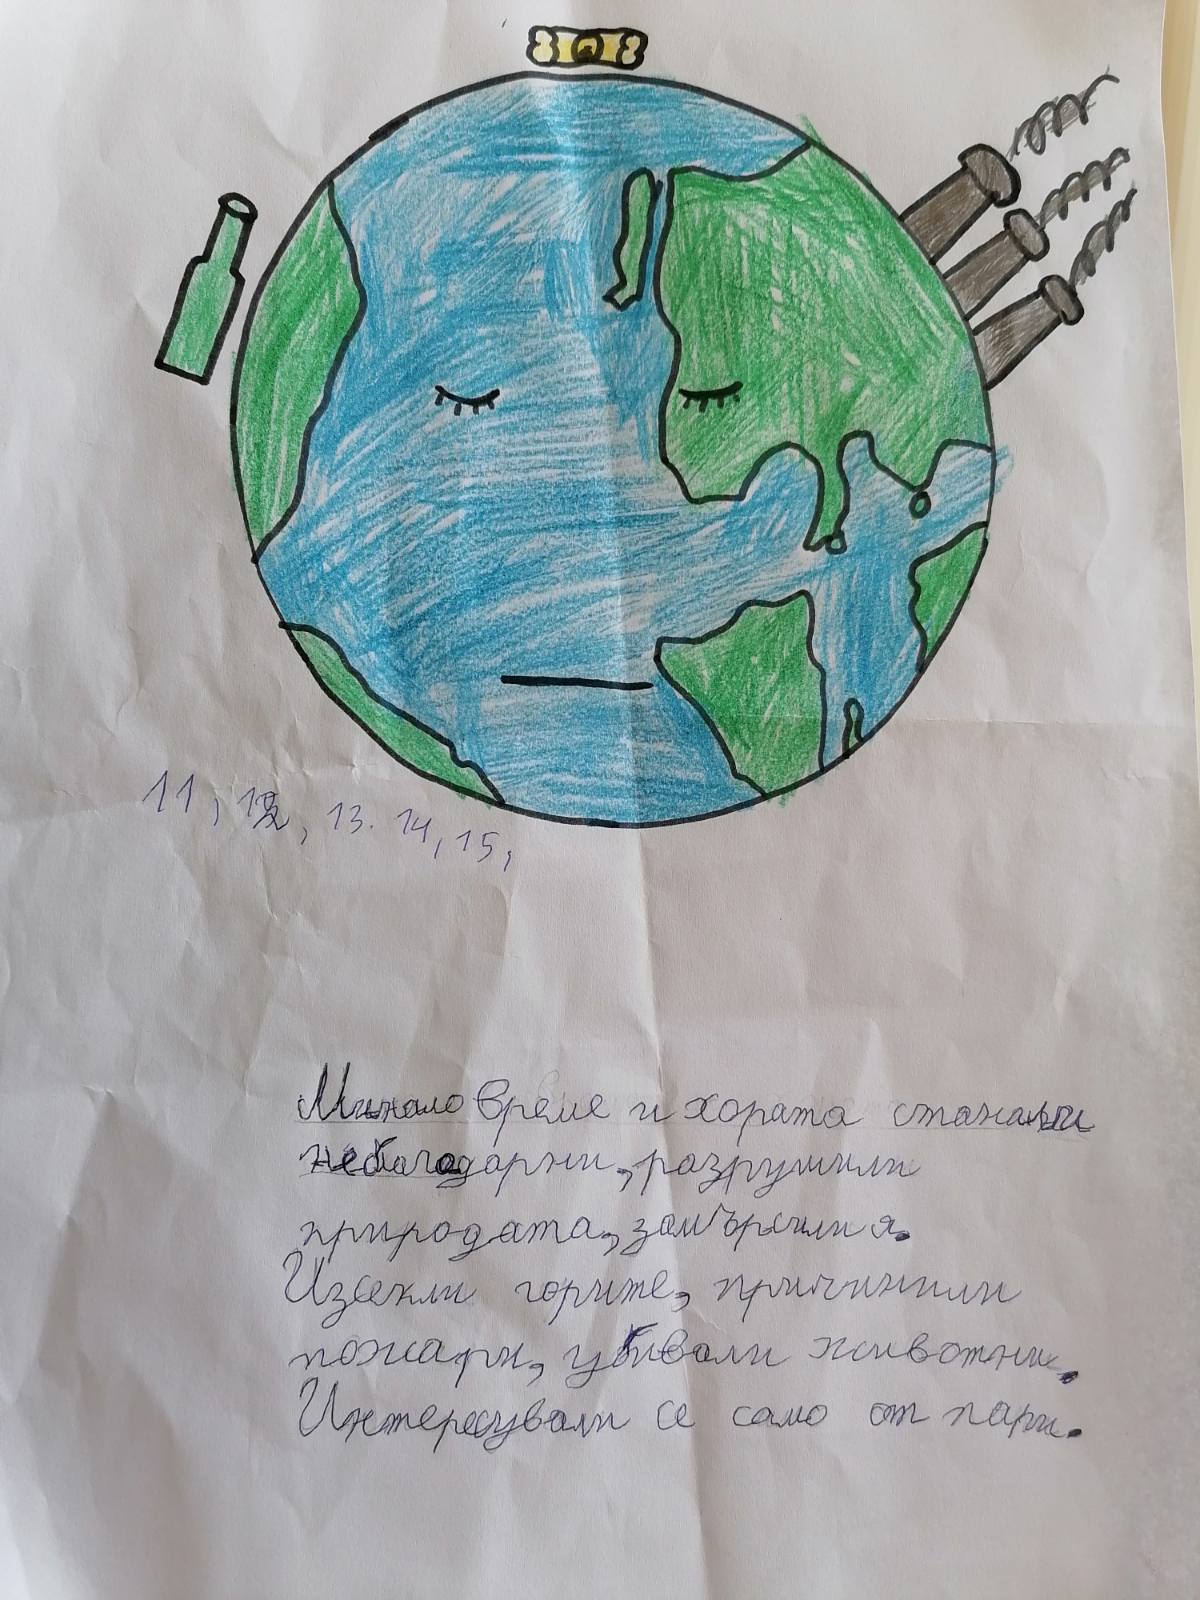 11, 12, 13. 14, 15,
Минало време и хората станали
неблагодарни, разрушили
природата, замърсили я.
Изсекли горите, причинили
пожари, убивали животни.
Интересували се само от пари.